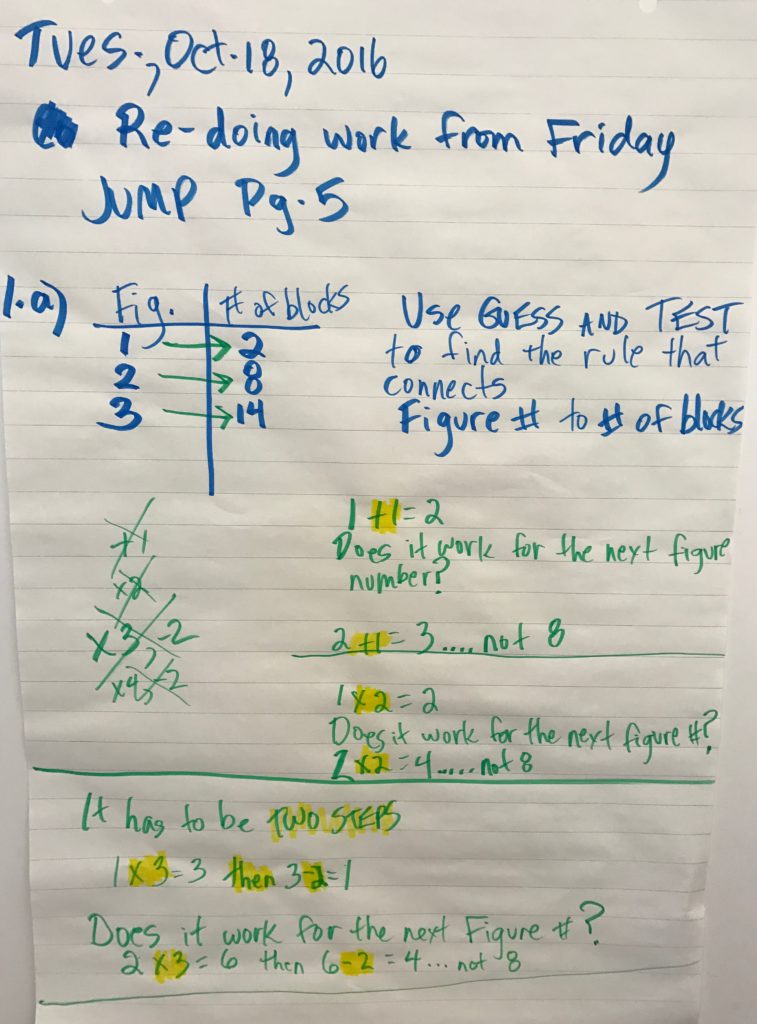 Tues., Oct. 18, 2016
Re-doing work from Friday
JUMP Pg. 5
1. a) Fig. # of blocks
1 → 2
2 → 8
3 → 14
Use GUESS AND TEST
to find the rule that
connects
Figure # to # of blocks
+1
x2
x3, -2
x4, -2
1 +1 = 2
Does it work for the next figure
number?
2 +1 = 3 .... not 8
1 x2 = 2
Does it work for the next figure #?
2 x2 = 4 ..... not 8
It has to be TWO STEPS
1 x 3 = 3 then 3-2=1
Does it work for the next Figure #?
2 x3 = 6 then 6-2 = 4 ... not 8